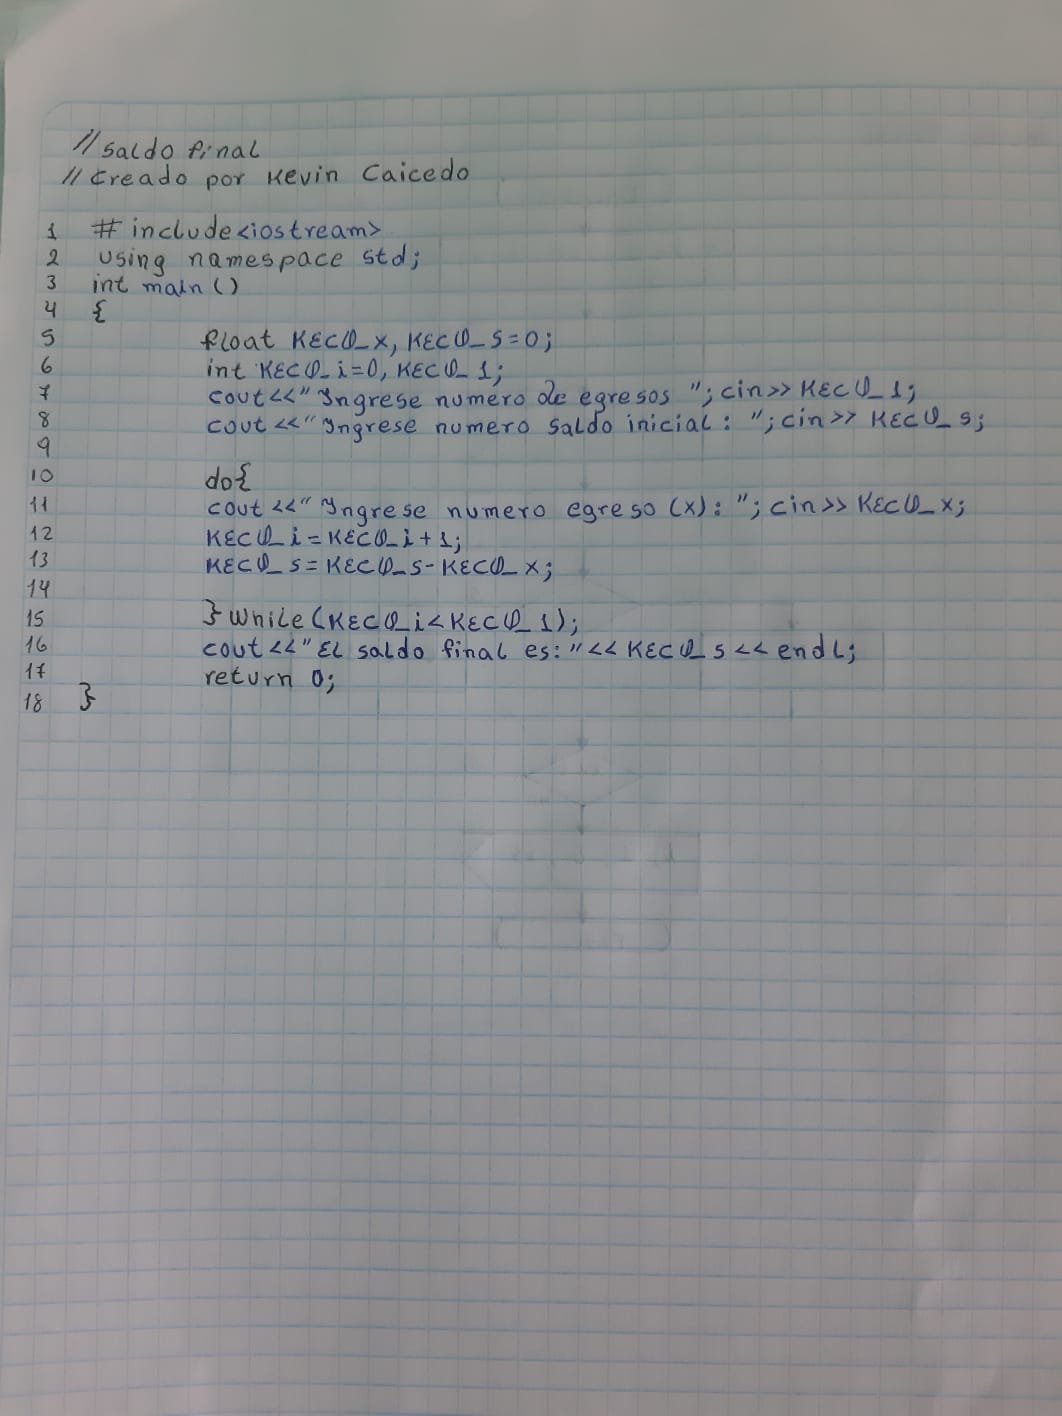 // Saldo final
// Creado por Kevin Caicedo
1 # include<iostream>
2 using namespace std;
3 int main ()
4 {
5 float KECV_x, KECV_s=0;
6 int KECV_i=0, KECV_1;
7 cout<<"Ingrese numero de egresos ";cin>> KECV_1;
8 cout <<"Ingrese numero saldo inicial : ";cin>> KECV_s;
9
10 do{
11 cout <<"Ingrese numero egreso (x): "; cin>> KECV_x;
12 KECV_i=KECV_i+1;
13 KECV_s=KECV_s-KECV_x;
14
15 } while (KECV_i<KECV_1);
16 cout <<"El saldo final es:"<< KECV_s << endl;
17 return 0;
18 }